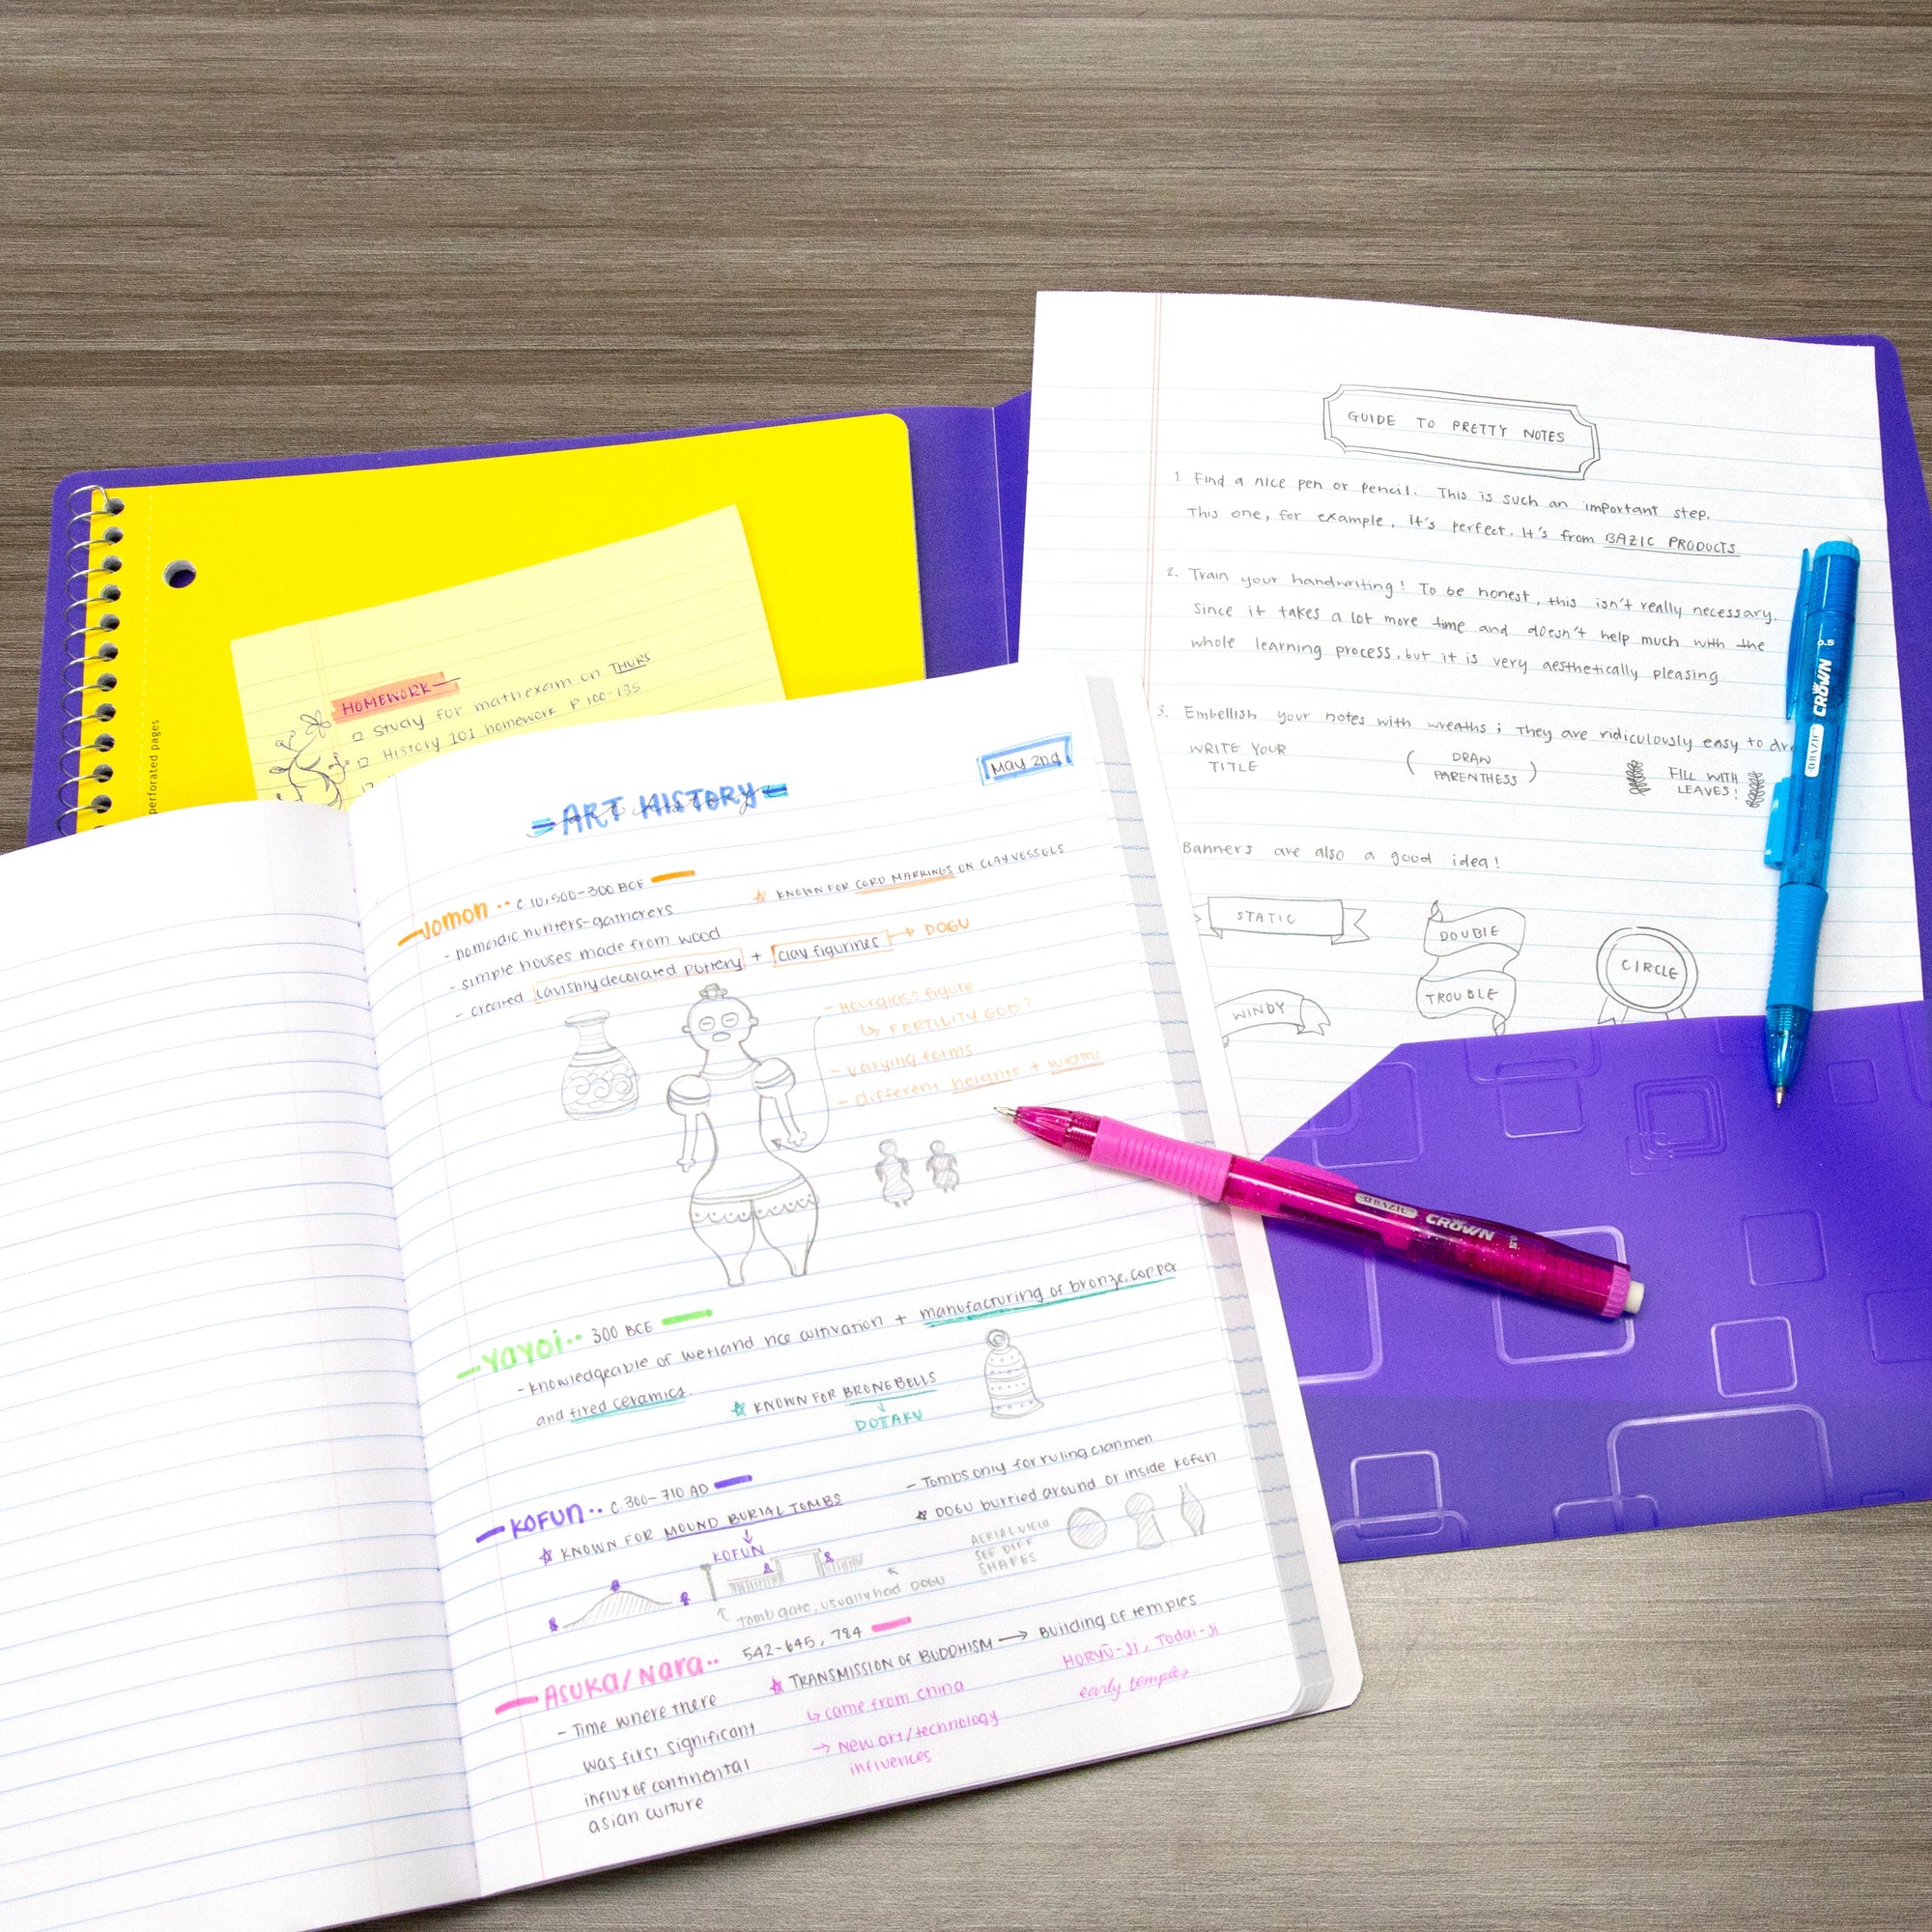 perforated pages
HOMEWORK
Study for math exam on THURS
History 101 homework P 100-135
GUIDE TO PRETTY NOTES
1. Find a nice pen or pencil. This is such an important step.
This one, for example, it's perfect. It's from BAZIC PRODUCTS
2. Train your handwriting! To be honest, this isn't really necessary.
Since it takes a lot more time and doesn't help much with the
whole learning process, but it is very aesthetically pleasing
3. Embellish your notes with wreaths; They are ridiculously easy to
WRITE YOUR
TITLE
( DRAW
PARENTHESS )
FILL WITH
LEAVES!
Banners are also a good idea!
STATIC
DOUBLE
TROUBLE
CIRCLE
WINDY
BAZIC CROWN 0.5
BAZIC CROWN 0.5
May 2nd
ART HISTORY
Jomon c 10,500-300 BCE
☆ KNOWN FOR CORD MARKINGS ON CLAY VESSELS
- nomadic hunters-gatherers
- simple houses made from wood
- created lavishly decorated pottery + clay figurines → DOGU
- Hourglass figure
↳ FERTILITY GOD?
- varying forms
- different heights + widths
Yayoi 300 BCE
- knowledgeable of wetland rice cultivation + manufacturing of bronze, copper
and fired ceramics.
☆ KNOWN FOR BRONE BELLS
↓
DOTAKU
KOFUN c. 300-710 AD
☆ KNOWN FOR MOUND BURIAL TOMBS
↓
KOFUN
- Tombs only for ruling clanmen
☆ DOGU burried around or inside kofun
AERIAL VIEW
SEE DIFF
SHAPES
Tomb gate, usually had DOGU
Asuka/Nara 542-645, 784
- Time where there
was first significant
influx of continental
asian culture
☆ TRANSMISSION OF BUDDHISM → Building of temples
↳ came from china
→ New art/technology
influences
HORYŪ-JI, Todai-Ji
early temples.